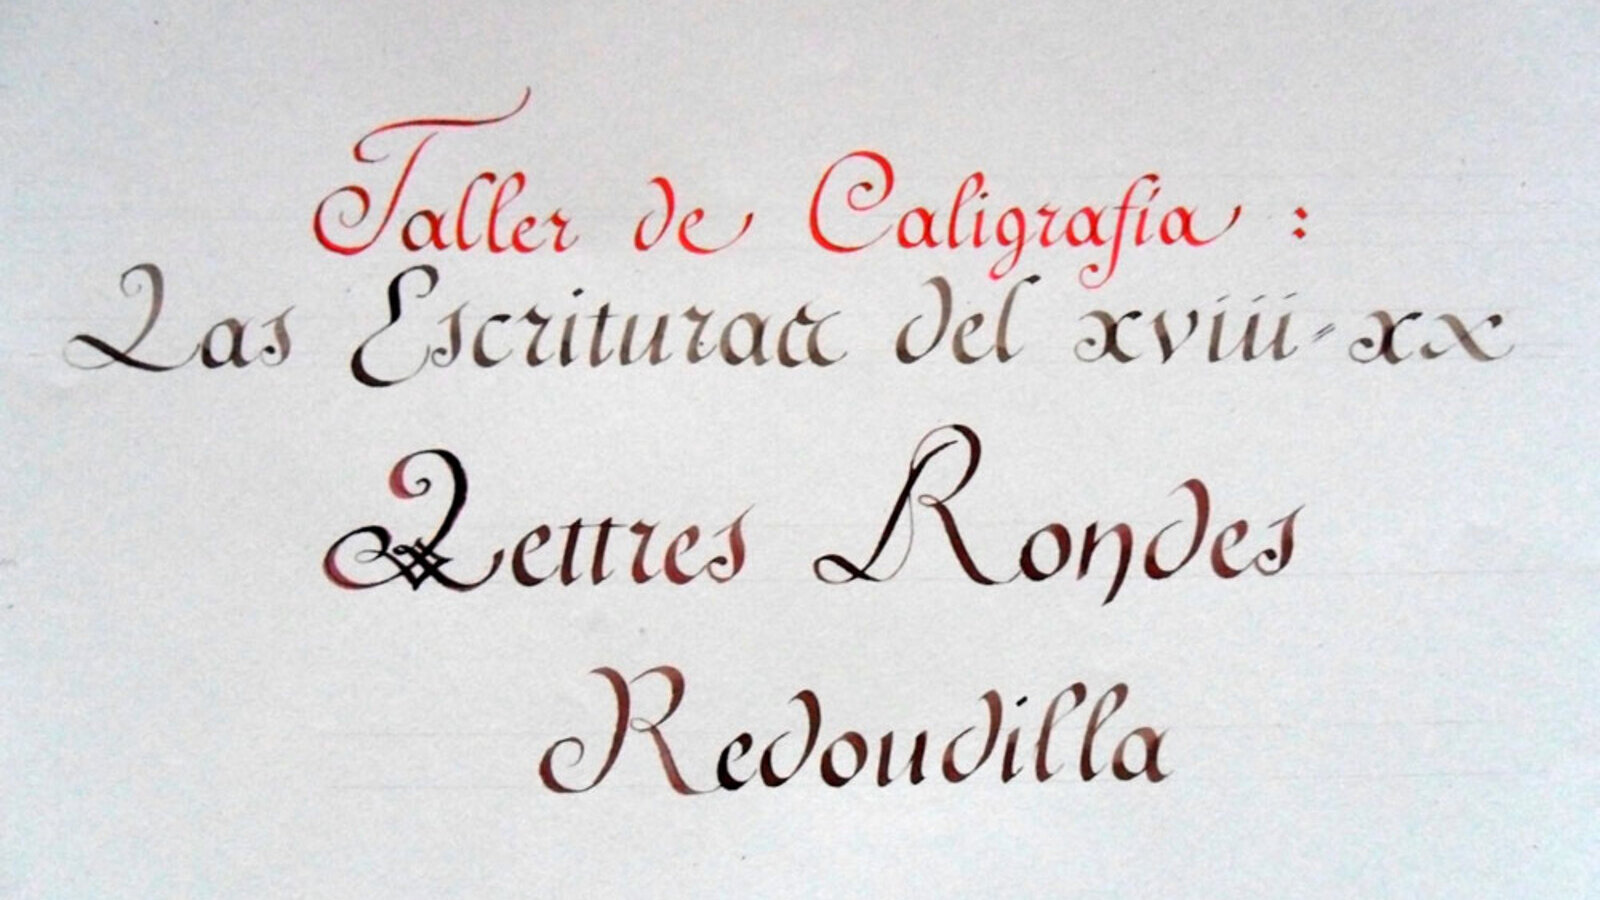 Taller de Caligrafía :
Las Escrituras del xviii-xx
Lettres Rondes
Redondilla